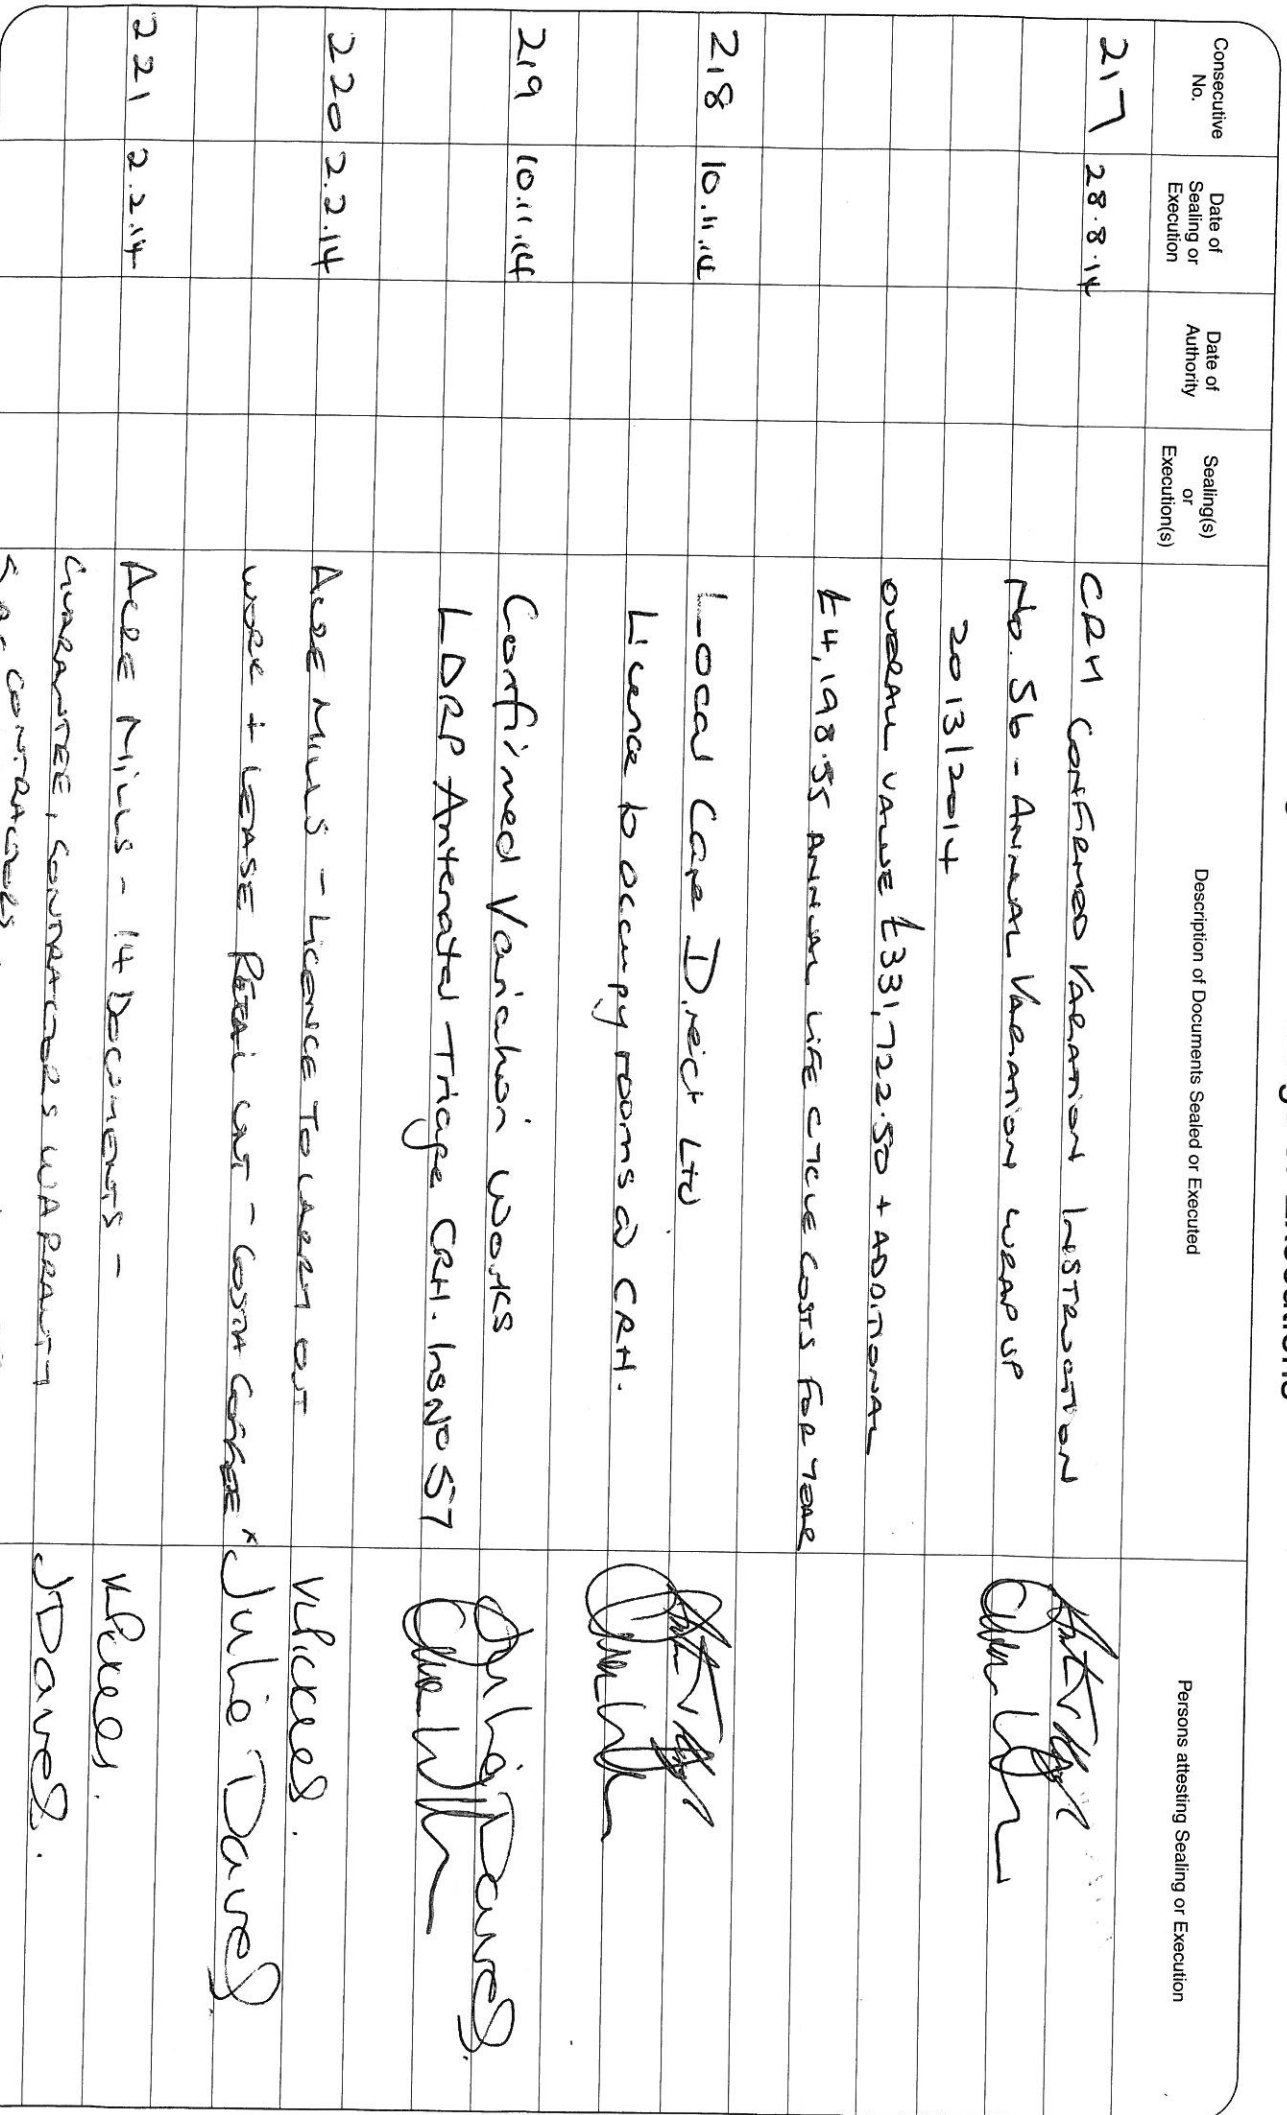 Consecutive No.
Date of Sealing or Execution
Date of Authority
Sealing(s) or Execution(s)
Description of Documents Sealed or Executed
Persons attesting Sealing or Execution
217 28.8.14 CRH CONFIRMED VARIATION INSTRUCTION
No. 56 - ANNUAL VARIATION WRAP UP
2013/2014
OVERALL VALUE £331,722.50 + ADDITIONAL
£4,198.55 ANNUAL LIFE CYCLE COSTS FOR YEAR
218 10.11.14 Local Care Direct Ltd
Licence to occupy rooms @ CRH.
219 10.11.14 Confirmed Variation Works
LDRP Antenatal Triage CRH. InsNo 57
220 2.2.14 ACRE MILLS - LICENCE TO CARRY OUT
WORK + LEASE RETAIL UNIT - COSTA COFFEE * Julie Dawes.
221 2.2.14 ACRE MILLS - 14 DOCUMENTS -
GUARANTEE, CONTRACTORS WARRANTY J Dawes.
CONTRACTORS